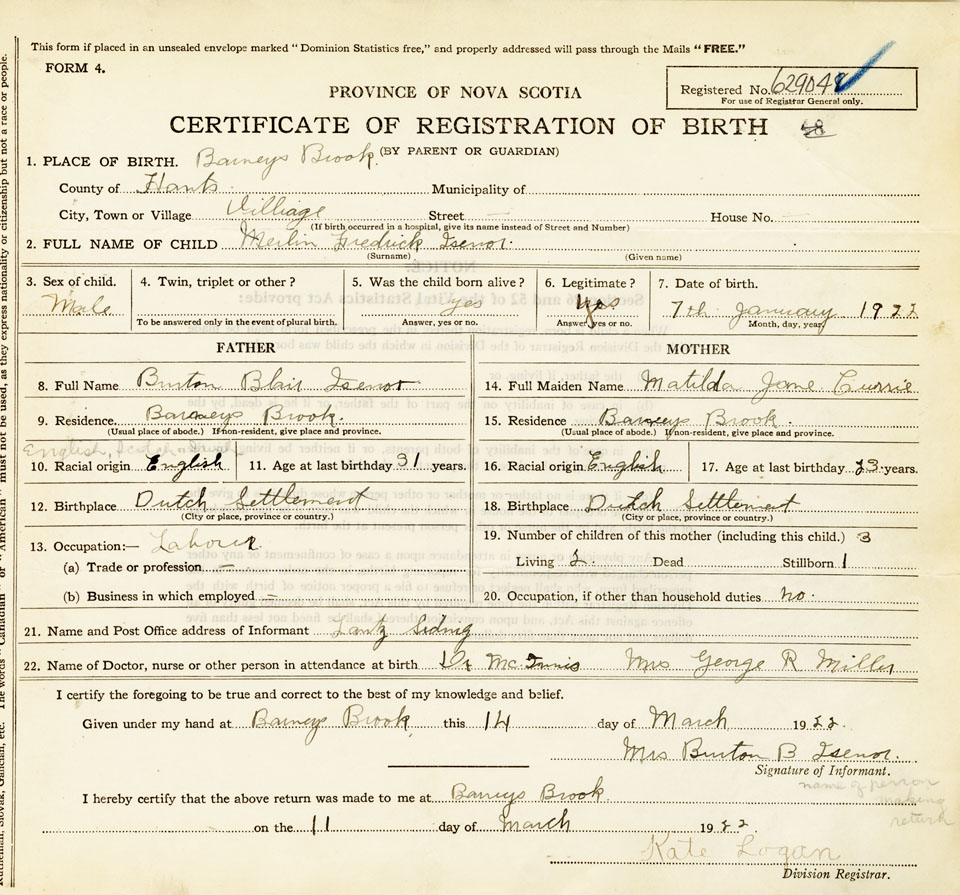 This form if placed in an unsealed envelope marked "Dominion Statistics free," and properly addressed will pass through the Mails "FREE."
FORM 4.
Registered No. 629048
For use of Registrar General only.
PROVINCE OF NOVA SCOTIA
CERTIFICATE OF REGISTRATION OF BIRTH 48
(BY PARENT OR GUARDIAN)
1. PLACE OF BIRTH. Barneys Brook
County of Hants Municipality of
City, Town or Village Villiage Street — House No. —
(If birth occurred in a hospital, give its name instead of Street and Number)
2. FULL NAME OF CHILD Merlin Fredrick Isenor
(Surname) (Given name)
3. Sex of child. 4. Twin, triplet or other? 5. Was the child born alive? 6. Legitimate? 7. Date of birth.
Male yes yes 7th January 1922
To be answered only in the event of plural birth. Answer, yes or no. Answer yes or no. Month, day, year
FATHER MOTHER
8. Full Name Burton Blair Isenor 14. Full Maiden Name Matilda Jane Currie
9. Residence Barneys Brook. 15. Residence Barneys Brook
(Usual place of abode.) If non-resident, give place and province. (Usual place of abode.) If non-resident, give place and province.
English, Scotch
10. Racial origin English 11. Age at last birthday 31 years. 16. Racial origin English 17. Age at last birthday 23 years.
12. Birthplace Dutch Settlement 18. Birthplace Dutch Settlement
(City or place, province or country.) (City or place, province or country.)
13. Occupation:— Labour 19. Number of children of this mother (including this child.) 3
(a) Trade or profession — Living 2. Dead Stillborn 1
(b) Business in which employed — 20. Occupation, if other than household duties no.
21. Name and Post Office address of Informant Lantz Siding
22. Name of Doctor, nurse or other person in attendance at birth Dr McInnis Mrs George R Miller
I certify the foregoing to be true and correct to the best of my knowledge and belief.
Given under my hand at Barneys Brook this 14 day of March 1922.
Mrs Burton B Isenor.
Signature of Informant.
name of person making return
I hereby certify that the above return was made to me at Barneys Brook
on the 11 day of March 1922
Kate Logan
Division Registrar.